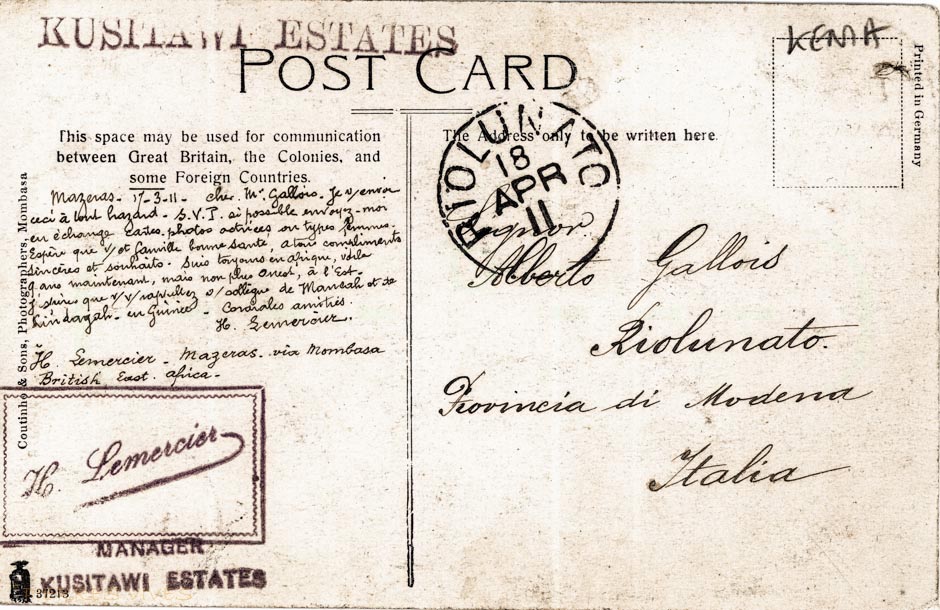 KUSITAWI ESTATES
POST CARD
KENIA
Printed in Germany
This space may be used for communication
between Great Britain, the Colonies, and
some Foreign Countries.
The Address only to be written here.
RIOLUNATO
18
APR
11
Mazeras - 17-3-11 - cher Mr Gallois. Je v/ envoie
ceci à tout hazard - S.V.P. si possible envoyez-moi
en échange cartes photos actrices ou types femmes.
Espère que v/ et famille bonne santé, a tous compliments
sincères et souhaits. Suis toujours en Afrique, voila
9 ans maintenant, mais non plus Ouest, à l'Est -
J'espère que v/ v/ rappellez v/ collègue de Mansah et de
en Guinée - Cordiales amitiés.
H. Lemercier.
H. Lemercier - Mazeras. via Mombasa
British East Africa -
Signor
Alberto Gallois
Riolunato.
Provincia di Modena
Italia
Coutinho & Sons, Photographers, Mombasa
H. Lemercier
MANAGER
KUSITAWI ESTATES
37213